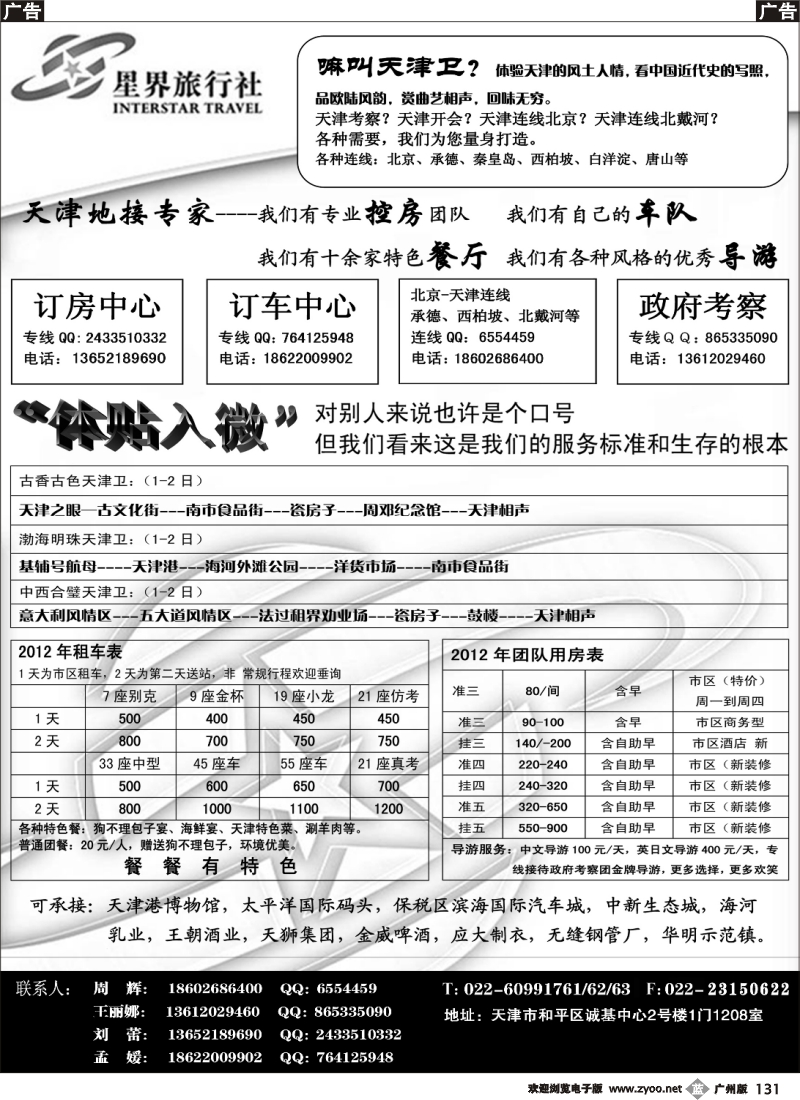 广告
广告
星界旅行社
INTERSTAR TRAVEL
嘛叫天津卫？ 体验天津的风土人情，看中国近代史的写照，
品欧陆风韵，赏曲艺相声，回味无穷。
天津考察？天津开会？天津连线北京？天津连线北戴河？
各种需要，我们为您量身打造。
各种连线：北京、承德、秦皇岛、西柏坡、白洋淀、唐山等
天津地接专家----我们有专业控房团队 我们有自己的车队
我们有十余家特色餐厅 我们有各种风格的优秀导游
订房中心
专线QQ：2433510332
电话：13652189690
订车中心
专线QQ：764125948
电话：18622009902
北京-天津连线
承德、西柏坡、北戴河等
连线QQ：6554459
电话：18602686400
政府考察
专线QQ：865335090
电话：13612029460
“体贴入微” 对别人来说也许是个口号
但我们看来这是我们的服务标准和生存的根本
古香古色天津卫：（1-2日）
天津之眼—古文化街---南市食品街---瓷房子---周邓纪念馆---天津相声
渤海明珠天津卫：（1-2日）
基辅号航母----天津港---海河外滩公园----洋货市场----南市食品街
中西合璧天津卫：（1-2日）
意大利风情区---五大道风情区---法过租界劝业场---瓷房子---鼓楼----天津相声
2012年租车表
1天为市区租车，2天为第二天送站，非 常规行程欢迎垂询
7座别克 9座金杯 19座小龙 21座仿考
1天 500 400 450 450
2天 800 700 750 750
33座中型 45座车 55座车 21座真考
1天 500 600 650 700
2天 800 1000 1100 1200
各种特色餐：狗不理包子宴、海鲜宴、天津特色菜、涮羊肉等。
普通团餐：20元/人，赠送狗不理包子，环境优美。
餐餐有特色
2012年团队用房表
准三 80/间 含早 市区（特价）周一到周四
准三 90-100 含早 市区商务型
挂三 140/-200 含自助早 市区酒店 新
准四 220-240 含自助早 市区（新装修
挂四 240-320 含自助早 市区（新装修
准五 320-650 含自助早 市区（新装修
挂五 550-900 含自助早 市区（新装修
导游服务：中文导游100元/天，英日文导游400元/天，专
线接待政府考察团金牌导游，更多选择，更多欢笑
可承接：天津港博物馆，太平洋国际码头，保税区滨海国际汽车城，中新生态城，海河
乳业，王朝酒业，天狮集团，金威啤酒，应大制衣，无缝钢管厂，华明示范镇。
联系人：周 辉： 18602686400 QQ：6554459
王丽娜： 13612029460 QQ：865335090
刘 蕾： 13652189690 QQ：2433510332
孟 媛： 18622009902 QQ：764125948
T：022-60991761/62/63 F：022-23150622
地址：天津市和平区诚基中心2号楼1门1208室
欢迎浏览电子版 www.zyoo.net 蓝 广州版 131